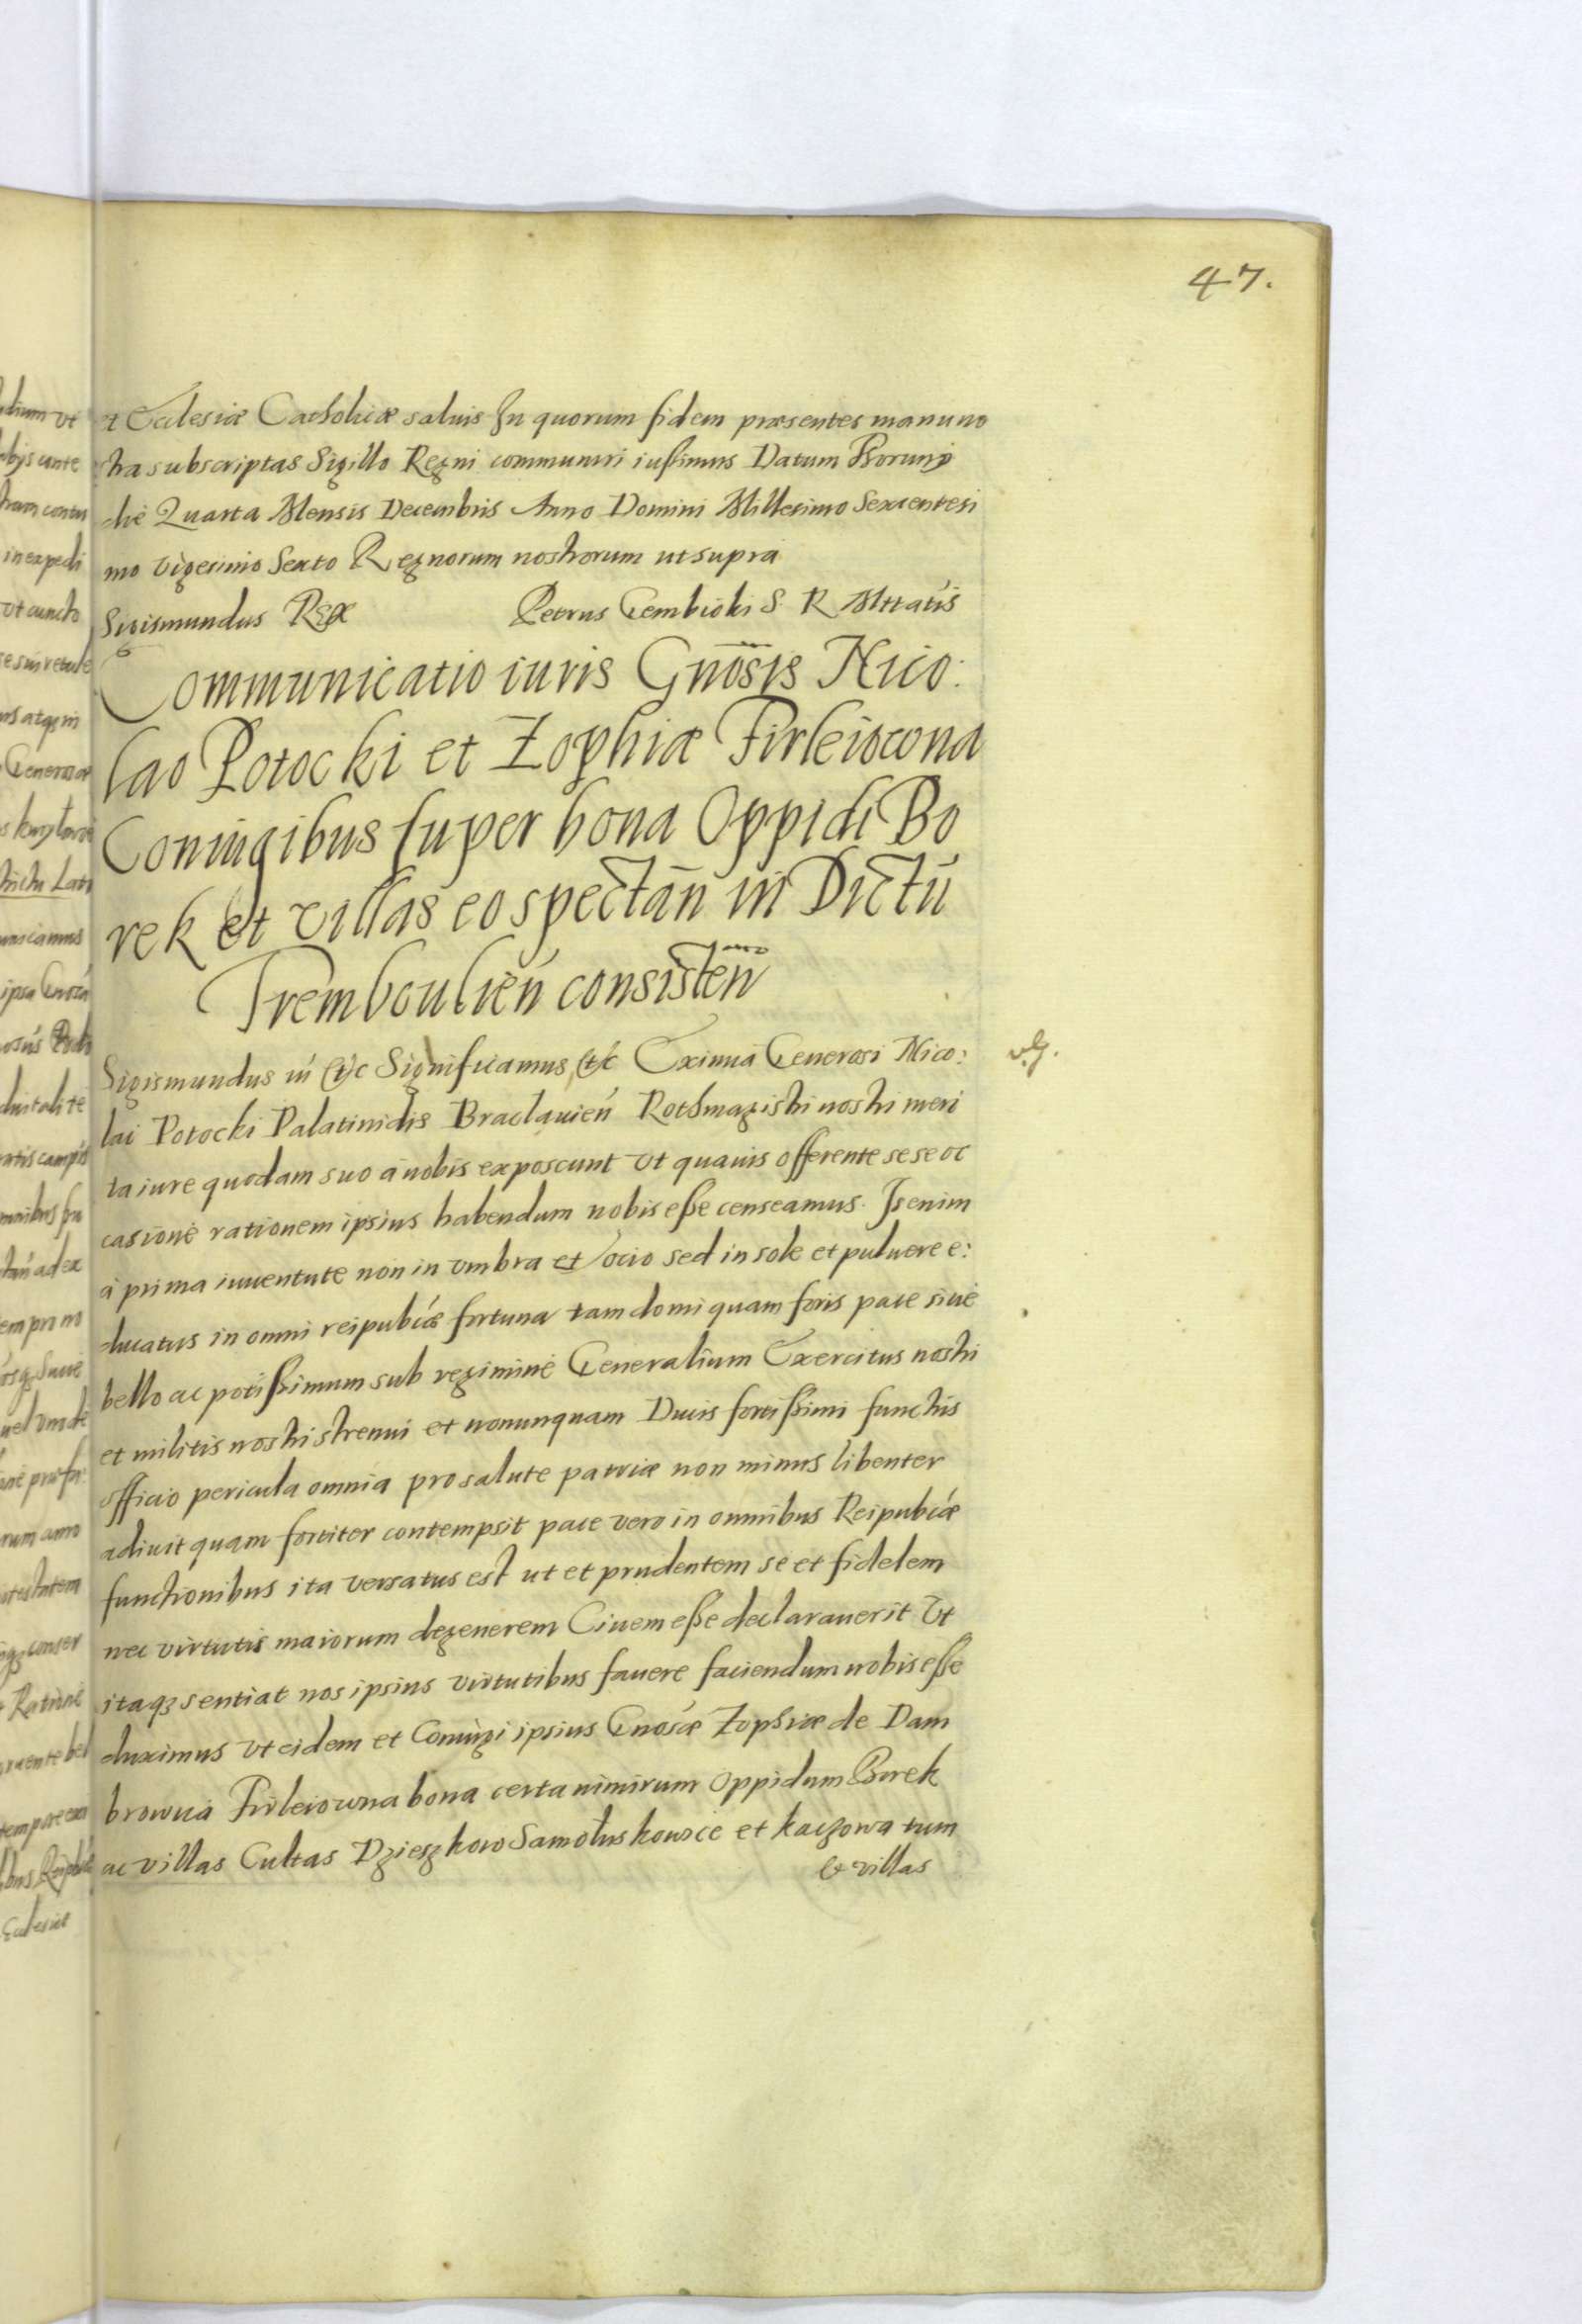 47.
et Ecclesiæ Catholicæ saluis In quorum fidem præsentes manu no
stra subscriptas Sigillo Regni communiri iussimus Datum Thorunÿ
die Quarta Mensis Decembris Anno Domini Millesimo Sexcentesi
mo vigesimo Sexto Regnorum nostrorum ut supra
Sigismundus Rex Petrus Gembicki S R Mttatis
Communicatio iuris Gnosis Nico:
lao Potocki et Zophiæ Firleiowna
Coniugibus super bona Oppidi Bo
rek et villas eo spectan̄ in Dictū
Tremboulien̄ consisten̄
Sigismundus iii etc Significamus etc Eximia Generosi Nico:
lai Potocki Palatinidis Braclauień Rothmagistri nostri meri
ta iure quodam suo a nobis exposcunt vt quauis offerente sese oc
casione rationem ipsius habendum nobis esse censeamus. Is enim
à prima iuuentute non in vmbra et ocio sed in sole et puluere e:
ducatus in omni reipublicæ fortuna tam domi quam foris pace siue
bello ac potissimum sub regimine Generalium Exercitus nostri
et militis nostri strenui et nonunquam Ducis fortissimi functus
officio pericula omnia pro salute patriæ non minus libenter
adiuit quam fortiter contempsit pace vero in omnibus Reipubcæ
functionibus ita versatus est ut et prudentem se et fidelem
nec virtutis maiorum degenerem Ciuem esse declarauerit Vt
itaqꝫ sentiat nos ipsius virtutibus fauere faciendum nobis esse
duximus vt eidem et Coniugi ipsius Gnosæ Zophiæ de Dam
browica Firleiowna bona certa nimirum Oppidum Borek
ac villas Cultas Dzieszkow Samoluskowce et kaczowa tum
& villas